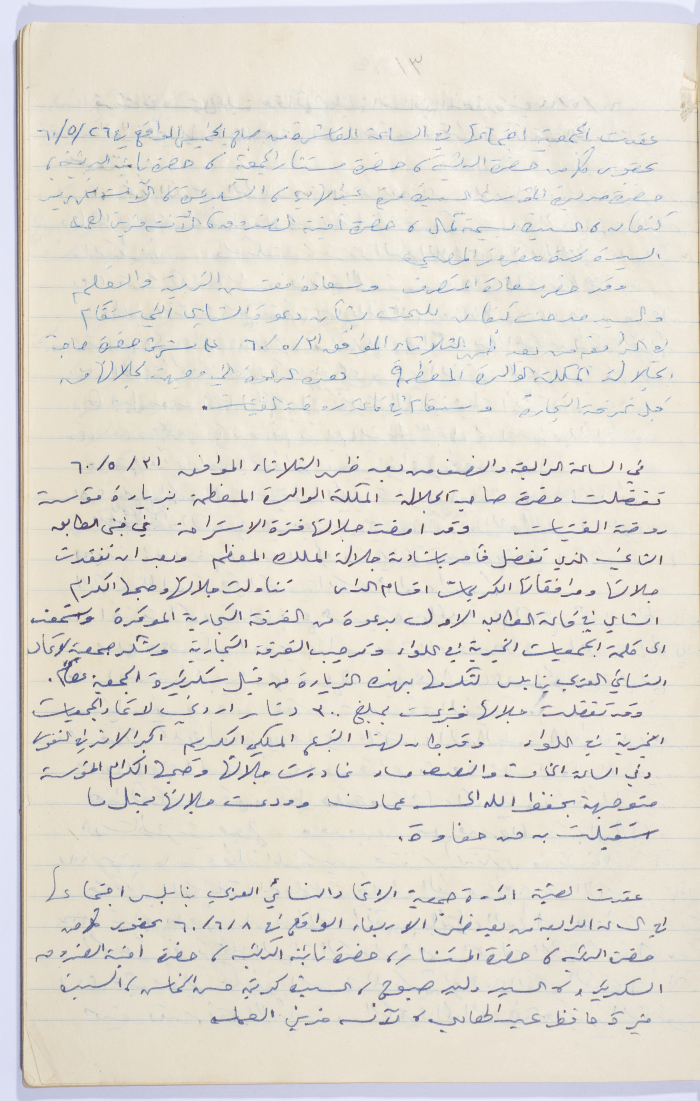 ١٣
عقدت الجمعية اجتماعها في الساعة العاشرة من صباح الخميس الواقع في ٢٦/٥/٦٠
بحضور كل من حضرة الرئيسة، حضرة مستشار الجمعية، حضرة نائبة الرئيسة،
حضرة مديرة المؤسسة السيدة عبد الهادي، السكرتيرة، الآنسة
كنعان، السيدة كمال، حضرة أمينة الصندوق، الآنسة فريزن العملة
السيدة المصري
وقد حضر سعادة المتصرف وسعادة مفتش التربية والتعليم
والسيد كنعان للبحث بشأن دعوة الشاي التي ستقام
في الرابعة من بعد ظهر الثلاثاء الموافق ٣١/٥/٦٠ على شرف حضرة صاحبة
الجلالة الملكة الوالدة المعظمة بهذه الدعوة التي وجهت لجلالتها من
قبل غرفة التجارة وستقام في قاعة روضة الفتيات.
في الساعة الرابعة والنصف من بعد ظهر الثلاثاء الموافق ٣١/٥/٦٠
تفضلت حضرة صاحبة الجلالة الملكة الوالدة المعظمة بزيارة مؤسسة
روضة الفتيات وقد امضت جلالتها فترة الاستراحة في مبنى الطابق
الثاني الذي تفضل فأمر بانشائه جلالة الملك المعظم وبعد ان تفقدت
جلالتها ومرافقاتها الكريمات اقسام الدار تناولت جلالتها وصحبها الكرام
الشاي في قاعة الطابق الاول بدعوة من الغرفة التجارية الموقرة واستمعت
الى كلمة الجمعيات الخيرية في اللواء وترحيب الغرفة التجارية وشكر جمعية الاتحاد
النسائي العربي بنابلس لتكرمها بهذه الزيارة من قبل سكرتيرة الجمعية
وقد تفضلت جلالتها فتبرعت بمبلغ ٣٠٠ دينار اردني لاتحاد الجمعيات
الخيرية في اللواء وقد كان لهذا التبرع الملكي الكريم اكبر الاثر في النفوس
وفي الساعة الخامسة والنصف مساء غادرت جلالتها وصحبها الكرام المؤسسة
متوجهة بحفظ الله الى عمان وودعت جلالتها بمثل ما
استقبلت به من حفاوة.
عقدت لجنة ادارة جمعية الاتحاد النسائي العربي بنابلس اجتماعها
في الساعة الرابعة من بعد ظهر الاربعاء الواقع في ٨/٦/٦٠ بحضور كل من
حضرة الرئيسة، حضرة المستشار، حضرة نائبة الرئيسة، حضرة أمينة الصندوق
السكرتيرة، السيد وليد صبوح، السيدة كرمة حسن النحاس، السيدة
منيرة حافظ عبد الهادي، الآنسة فريزن العملة.